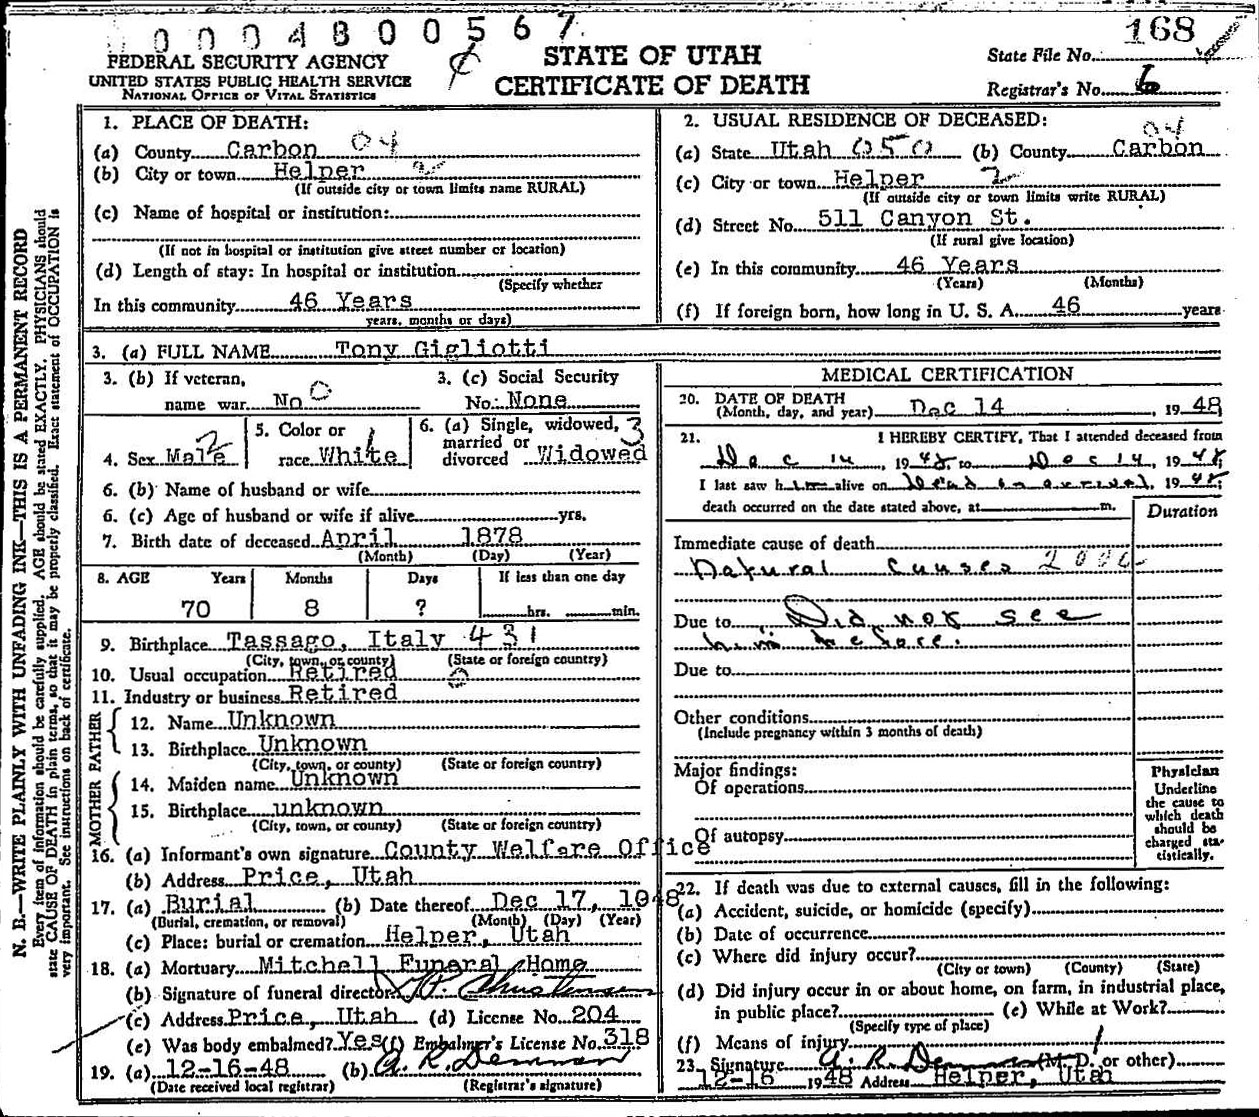 000480 0567.
FEDERAL SECURITY AGENCY
UNITED STATES PUBLIC HEALTH SERVICE
NATIONAL OFFICE OF VITAL STATISTICS
STATE OF UTAH
CERTIFICATE OF DEATH
State File No. 168
Registrar's No. 6
N. B.—WRITE PLAINLY WITH UNFADING INK—THIS IS A PERMANENT RECORD
Every item of information should be carefully supplied. AGE should be stated EXACTLY. PHYSICIANS should
state CAUSE OF DEATH in plain terms, so that it may be properly classified. Exact statement of OCCUPATION is
very important. See instructions on back of certificate.
1. PLACE OF DEATH:
(a) County Carbon 04
(b) City or town Helper 2
(If outside city or town limits name RURAL)
(c) Name of hospital or institution:
(If not in hospital or institution give street number or location)
(d) Length of stay: In hospital or institution
(Specify whether
In this community 46 Years
years, months or days)
2. USUAL RESIDENCE OF DECEASED:
04
(a) State Utah 050 (b) County Carbon
(c) City or town Helper 2
(If outside city or town limits write RURAL)
(d) Street No. 511 Canyon St.
(If rural give location)
(e) In this community 46 Years
(Years) (Months)
(f) If foreign born, how long in U. S. A. 46 years
3. (a) FULL NAME Tony Gigliotti
3. (b) If veteran, name war No 0
3. (c) Social Security No. None
4. Sex Male 2
5. Color or race White 1
6. (a) Single, widowed, married or divorced Widowed 3
6. (b) Name of husband or wife
6. (c) Age of husband or wife if alive yrs.
7. Birth date of deceased April 1878
(Month) (Day) (Year)
8. AGE Years Months Days If less than one day
70 8 ? hrs. min.
9. Birthplace Tassago, Italy 431
(City, town, or county) (State or foreign country)
10. Usual occupation Retired
11. Industry or business Retired
FATHER
12. Name Unknown
13. Birthplace Unknown
(City, town, or county) (State or foreign country)
MOTHER
14. Maiden name Unknown
15. Birthplace unknown
(City, town, or county) (State or foreign country)
16. (a) Informant's own signature County Welfare Office
(b) Address Price, Utah
17. (a) Burial (b) Date thereof Dec 17, 1048
(Burial, cremation, or removal) (Month) (Day) (Year)
(c) Place: burial or cremation Helper, Utah
18. (a) Mortuary Mitchell Funeral Home
(b) Signature of funeral director Christensen
(c) Address Price, Utah (d) License No. 204
(e) Was body embalmed? Yes (f) Embalmer's License No. 318
19. (a) 12-16-48 (b) A. R. Demman
(Date received local registrar) (Registrar's signature)
MEDICAL CERTIFICATION
20. DATE OF DEATH
(Month, day, and year) Dec 14, 1948
21. I HEREBY CERTIFY, That I attended deceased from
Dec 14, 1948, to Dec 14, 1948;
I last saw him alive on Dead on arrival, 1948;
death occurred on the date stated above, at m.
Duration
Immediate cause of death
Natural Causes 200
Due to Did not see
him before.
Due to
Other conditions
(Include pregnancy within 3 months of death)
Major findings:
Of operations
Of autopsy
Physician
Underline
the cause to
which death
should be
charged sta-
tistically.
22. If death was due to external causes, fill in the following:
(a) Accident, suicide, or homicide (specify)
(b) Date of occurrence
(c) Where did injury occur?
(City or town) (County) (State)
(d) Did injury occur in or about home, on farm, in industrial place,
in public place? (e) While at Work?
(Specify type of place)
(f) Means of injury
23. Signature A. R. Demman (M. D. or other)
12-16 1948 Address Helper, Utah